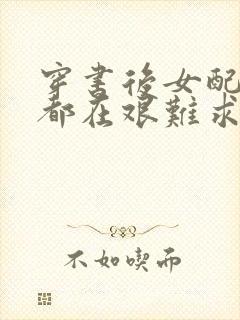 穿书后女配
都在艰难求
不如喫而